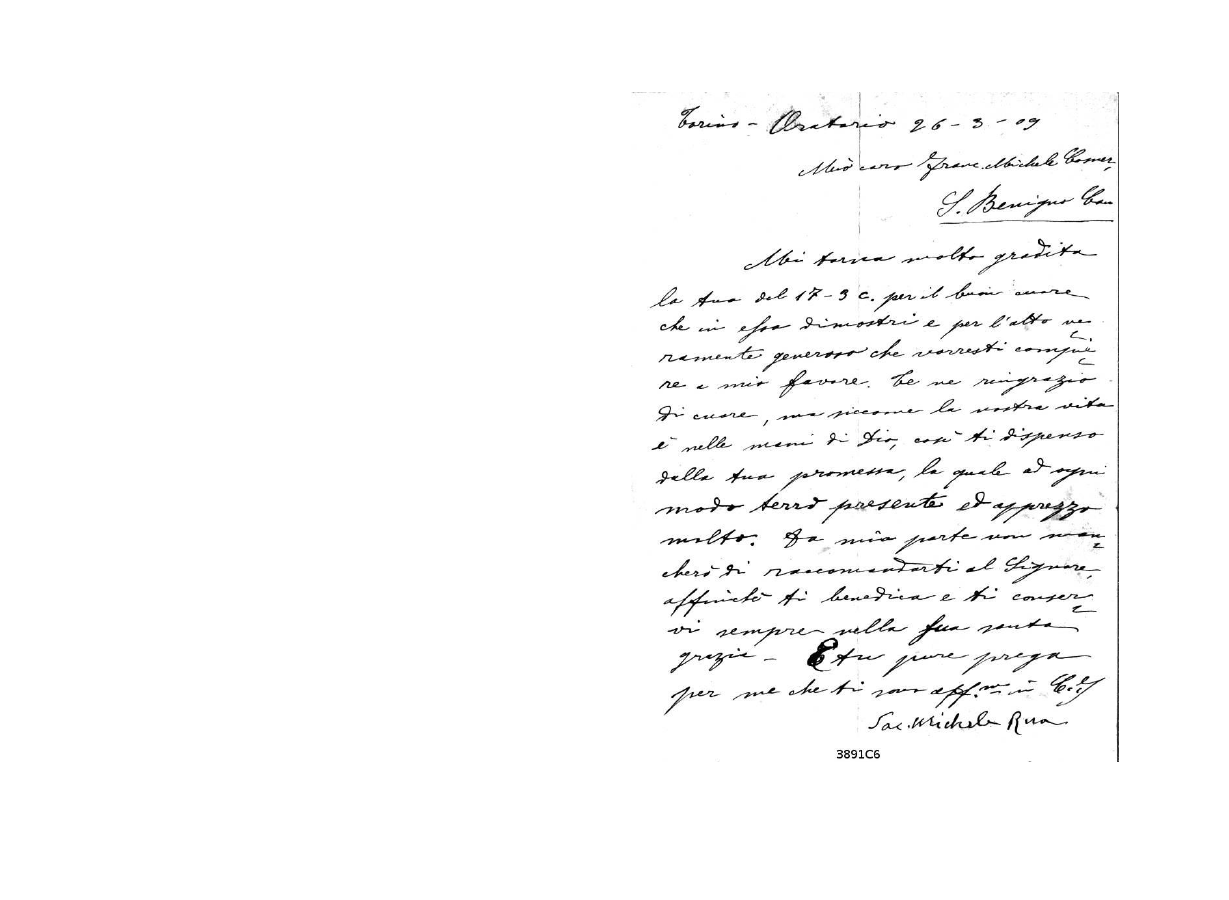 Torino - Oratorio 26 - 3 - 09
Mio caro Franc. Michele Comer,
S. Benigno Can
Mi torna molto gradita
la tua del 17 - 3 c. per il buon cuore
che in essa dimostri e per l'atto ve
ramente generoso che vorresti compie
re a mio favore. Te ne ringrazio
di cuore, ma siccome la nostra vita
è nelle mani di Dio, così ti dispenso
dalla tua promessa, la quale ad ogni
modo terrò presente ed apprezzo
molto. Da mia parte non man
cherò di raccomandarti al Signore,
affinchè ti benedica e ti conser
vi sempre nella sua santa
grazia - E tu pure prega
per me che ti sono aff.mo in C. e J
Sac. Michele Rua
3891C6